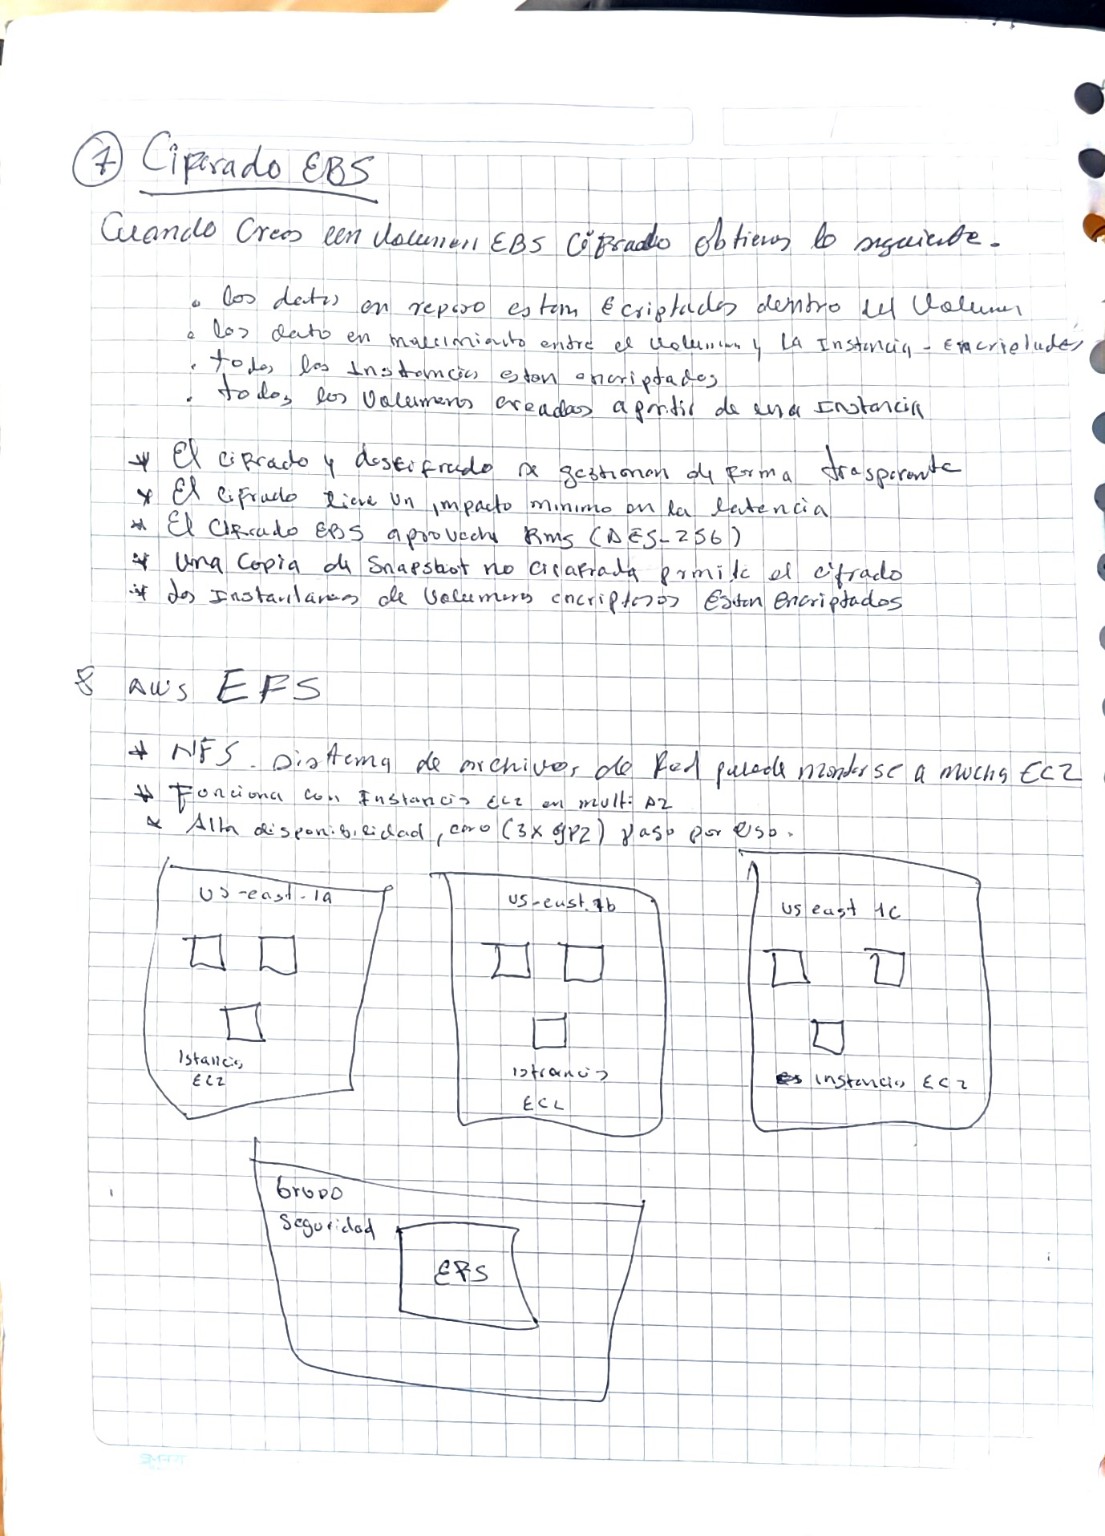 7 Cifrado EBS
Cuando Creas un Volumen EBS Cifrado obtienes lo siguiente.
. los datos en reposo estan Ecriptados dentro del Volumen
. los dato en movimiento entre el volumen y la Instancia - Encriptados
. todas las Instancias estan encriptados
. todos los Volumenes creados a partir de una Instancia
* El cifrado y descifrado se gestionan de forma trasparente
* El cifrado tiene un impacto minimo en la latencia
* El Cifrado EBS aprovecha Kms (AES-256)
* Una Copia de Snapshot no permite el cifrado
* Las Instantaneas de Volumenes Estan Encriptados
8 AWS EFS
* NFS. Sistema de archivos de Red puede montarse a mucha EC2
* Funciona con Instancis EC2 en multi AZ
* Alta disponibilidad, caro (3x gp2) pago por uso.
us-east-1a
us-east.1b
us east 1c
Istancis
EC2
istrancis
EC2
instancis EC2
Grupo
Seguridad
EFS